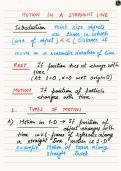 MOTION IN A STRAIGHT LINE
Introduction Point size objects
are those in which
(size of object) << (distance it
moves in a reasonable duration of time
REST If position does not change with
time
(At t=0, x=0 w.r.t origin O)
MOTION If position of particle
changes with time
1. TYPES OF MOTION
A) Motion in 1-D → If position of
object changes with
time w.r.t frame of reference along
a straight line, motion is 1-D
example Motion of train along
straight track